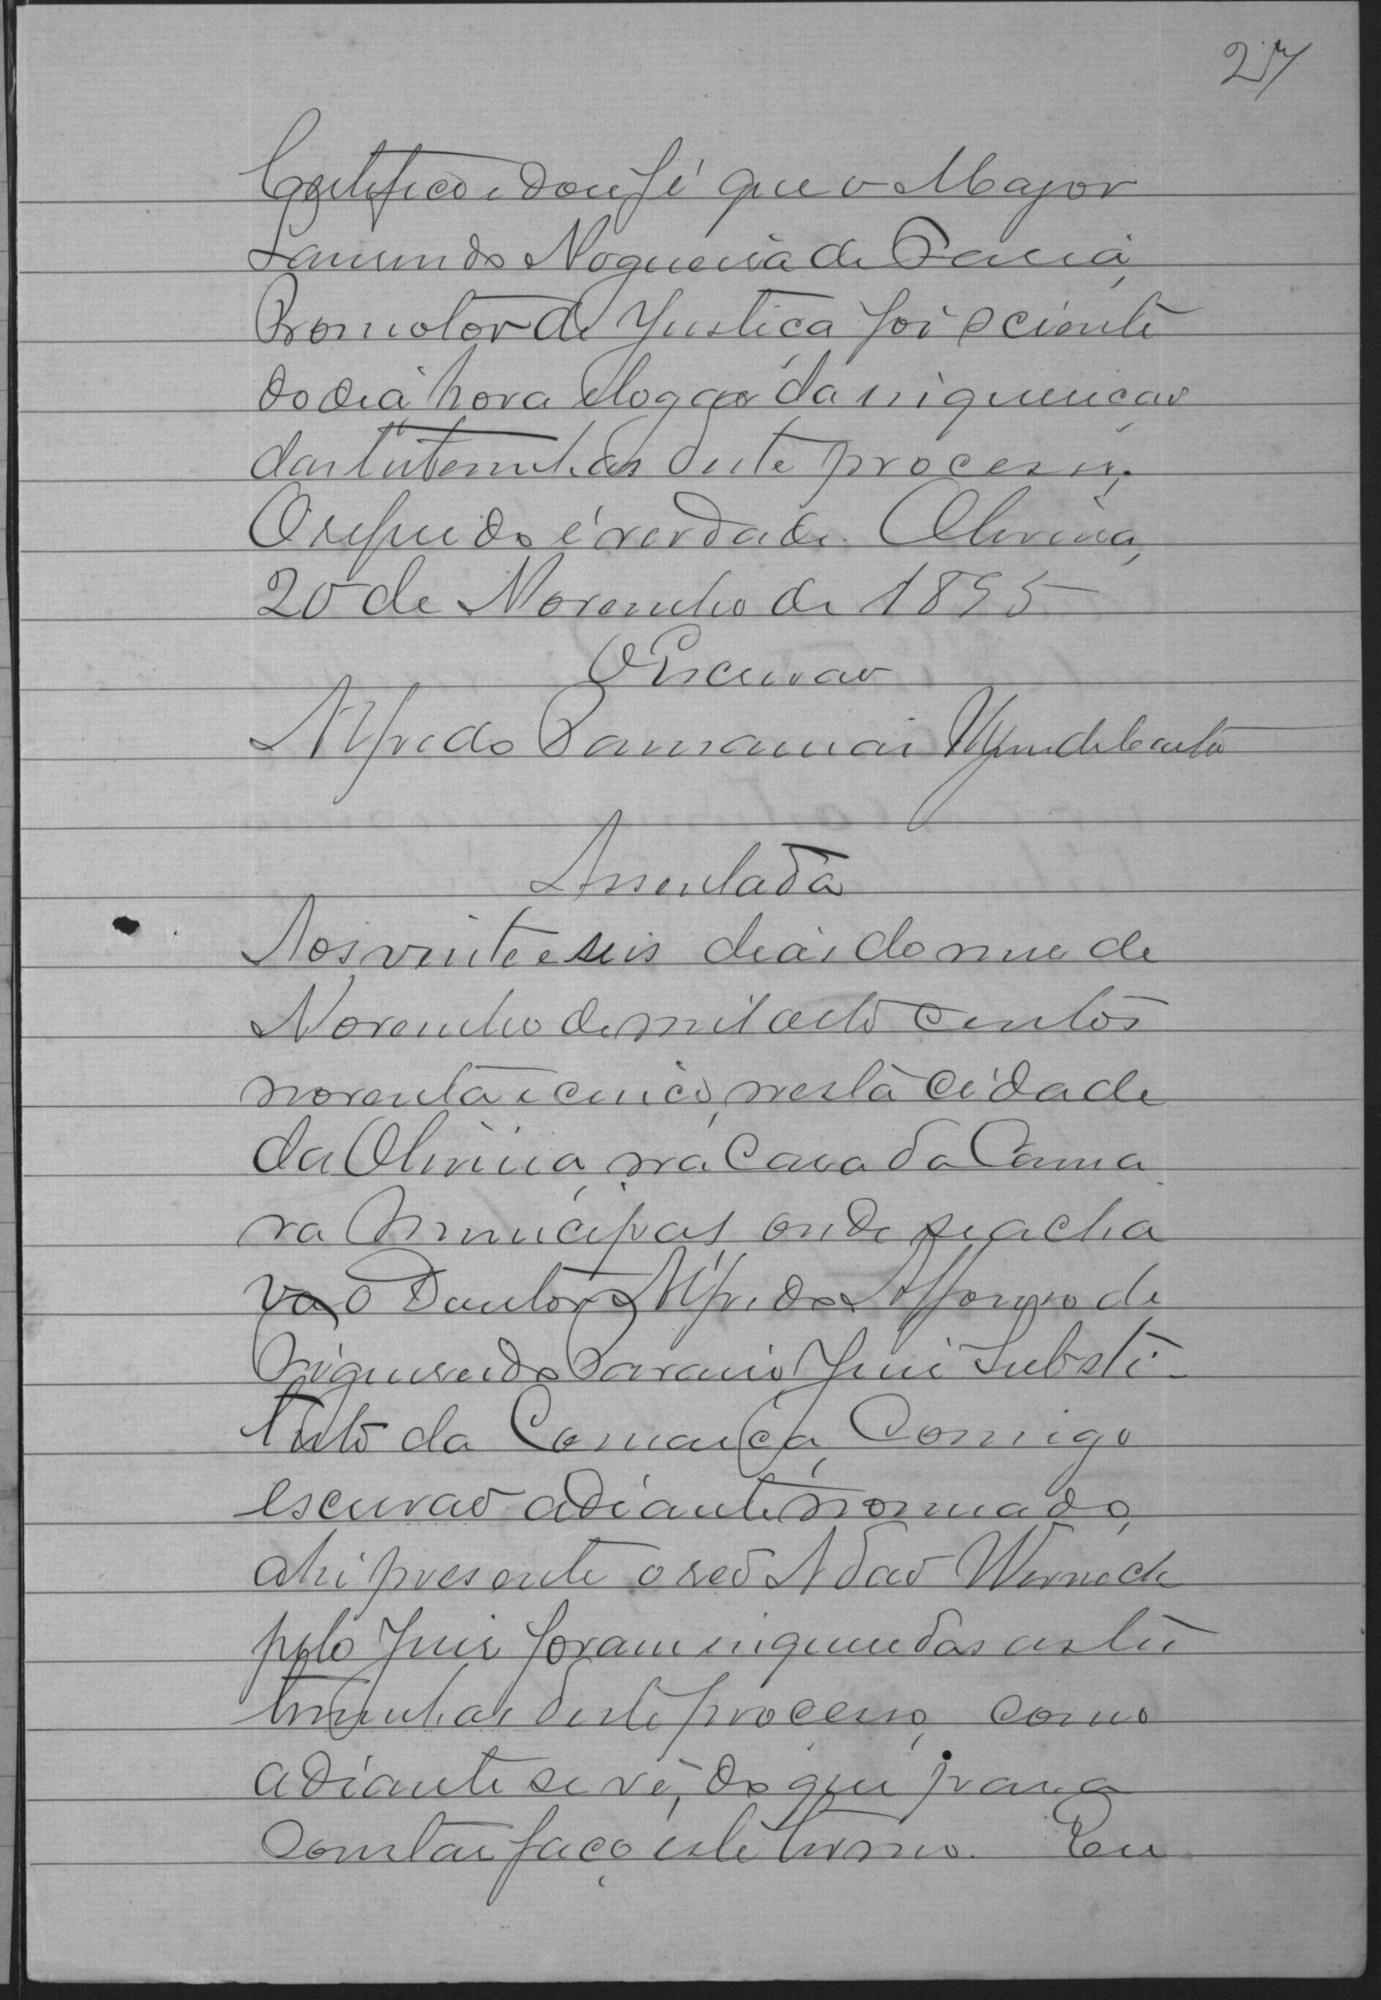 27
Certifico e dou fé que o Major
Nogueira de Faria,
Promotor de Justiça foi sciente
do dia hora e logar da inquirição
das testemunhas deste processo.
O referido é verdade. Oliveira,
20 de Novembro de 1895
O Escrivão
Alfredo
Assentada
Aos vinte e seis dias do mez de
Novembro de mil oito centos
noventa e cinco, nesta cidade
da Oliveira, na Casa da Cama
ra Municipal onde se acha
va o Doutor Alfredo Affonso de
Juiz Substi-
tuto da Comarca, Comigo
escrivão adiante nomeado,
ahi presente o reo Adão Werneck
pelo Juiz foram inqueridas as tes
temunhas deste processo, como
adiante se vê, do que para
constar faço este termo. Eu